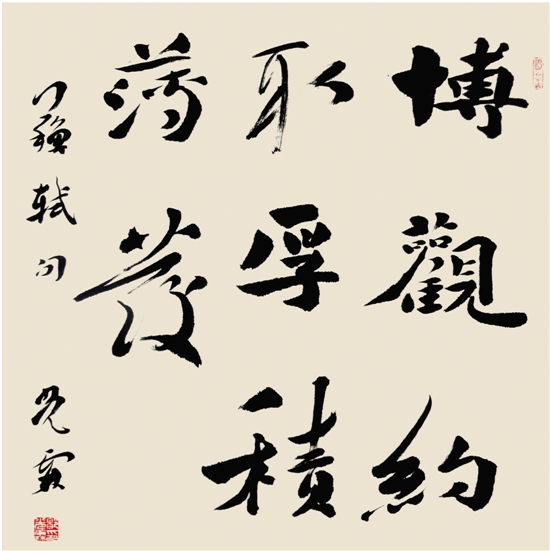 博觀約
取厚積
薄發
蘇軾句